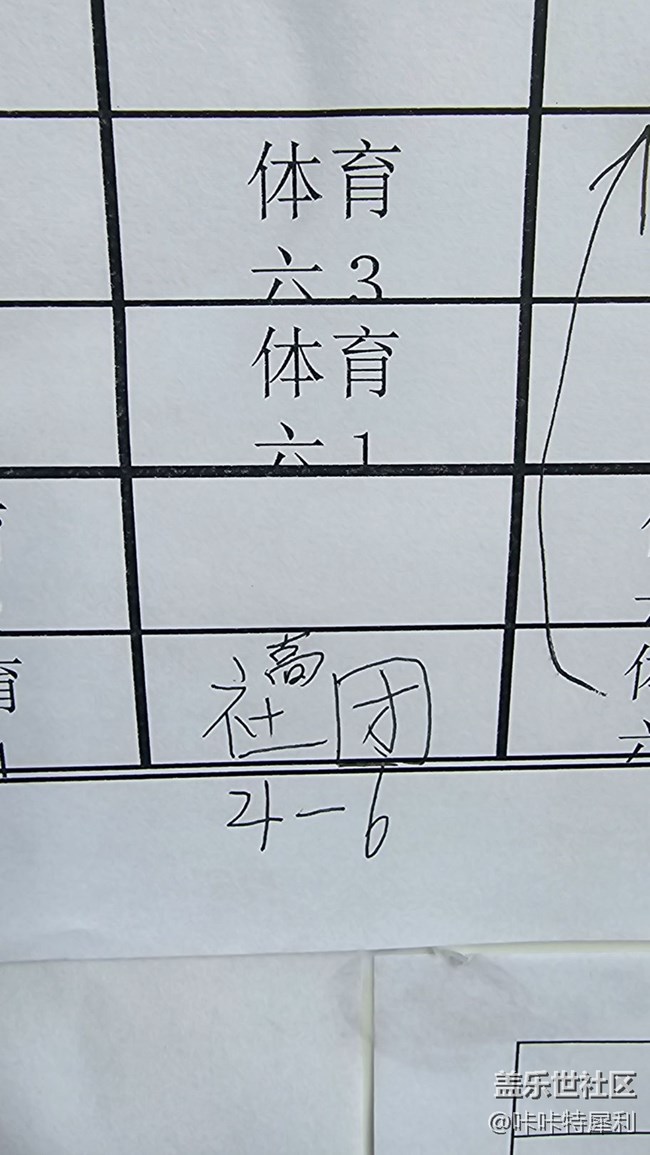 体育
六3
体育
六1
高
社团
4-6
体
六
育
盖乐世社区
@咔咔特犀利